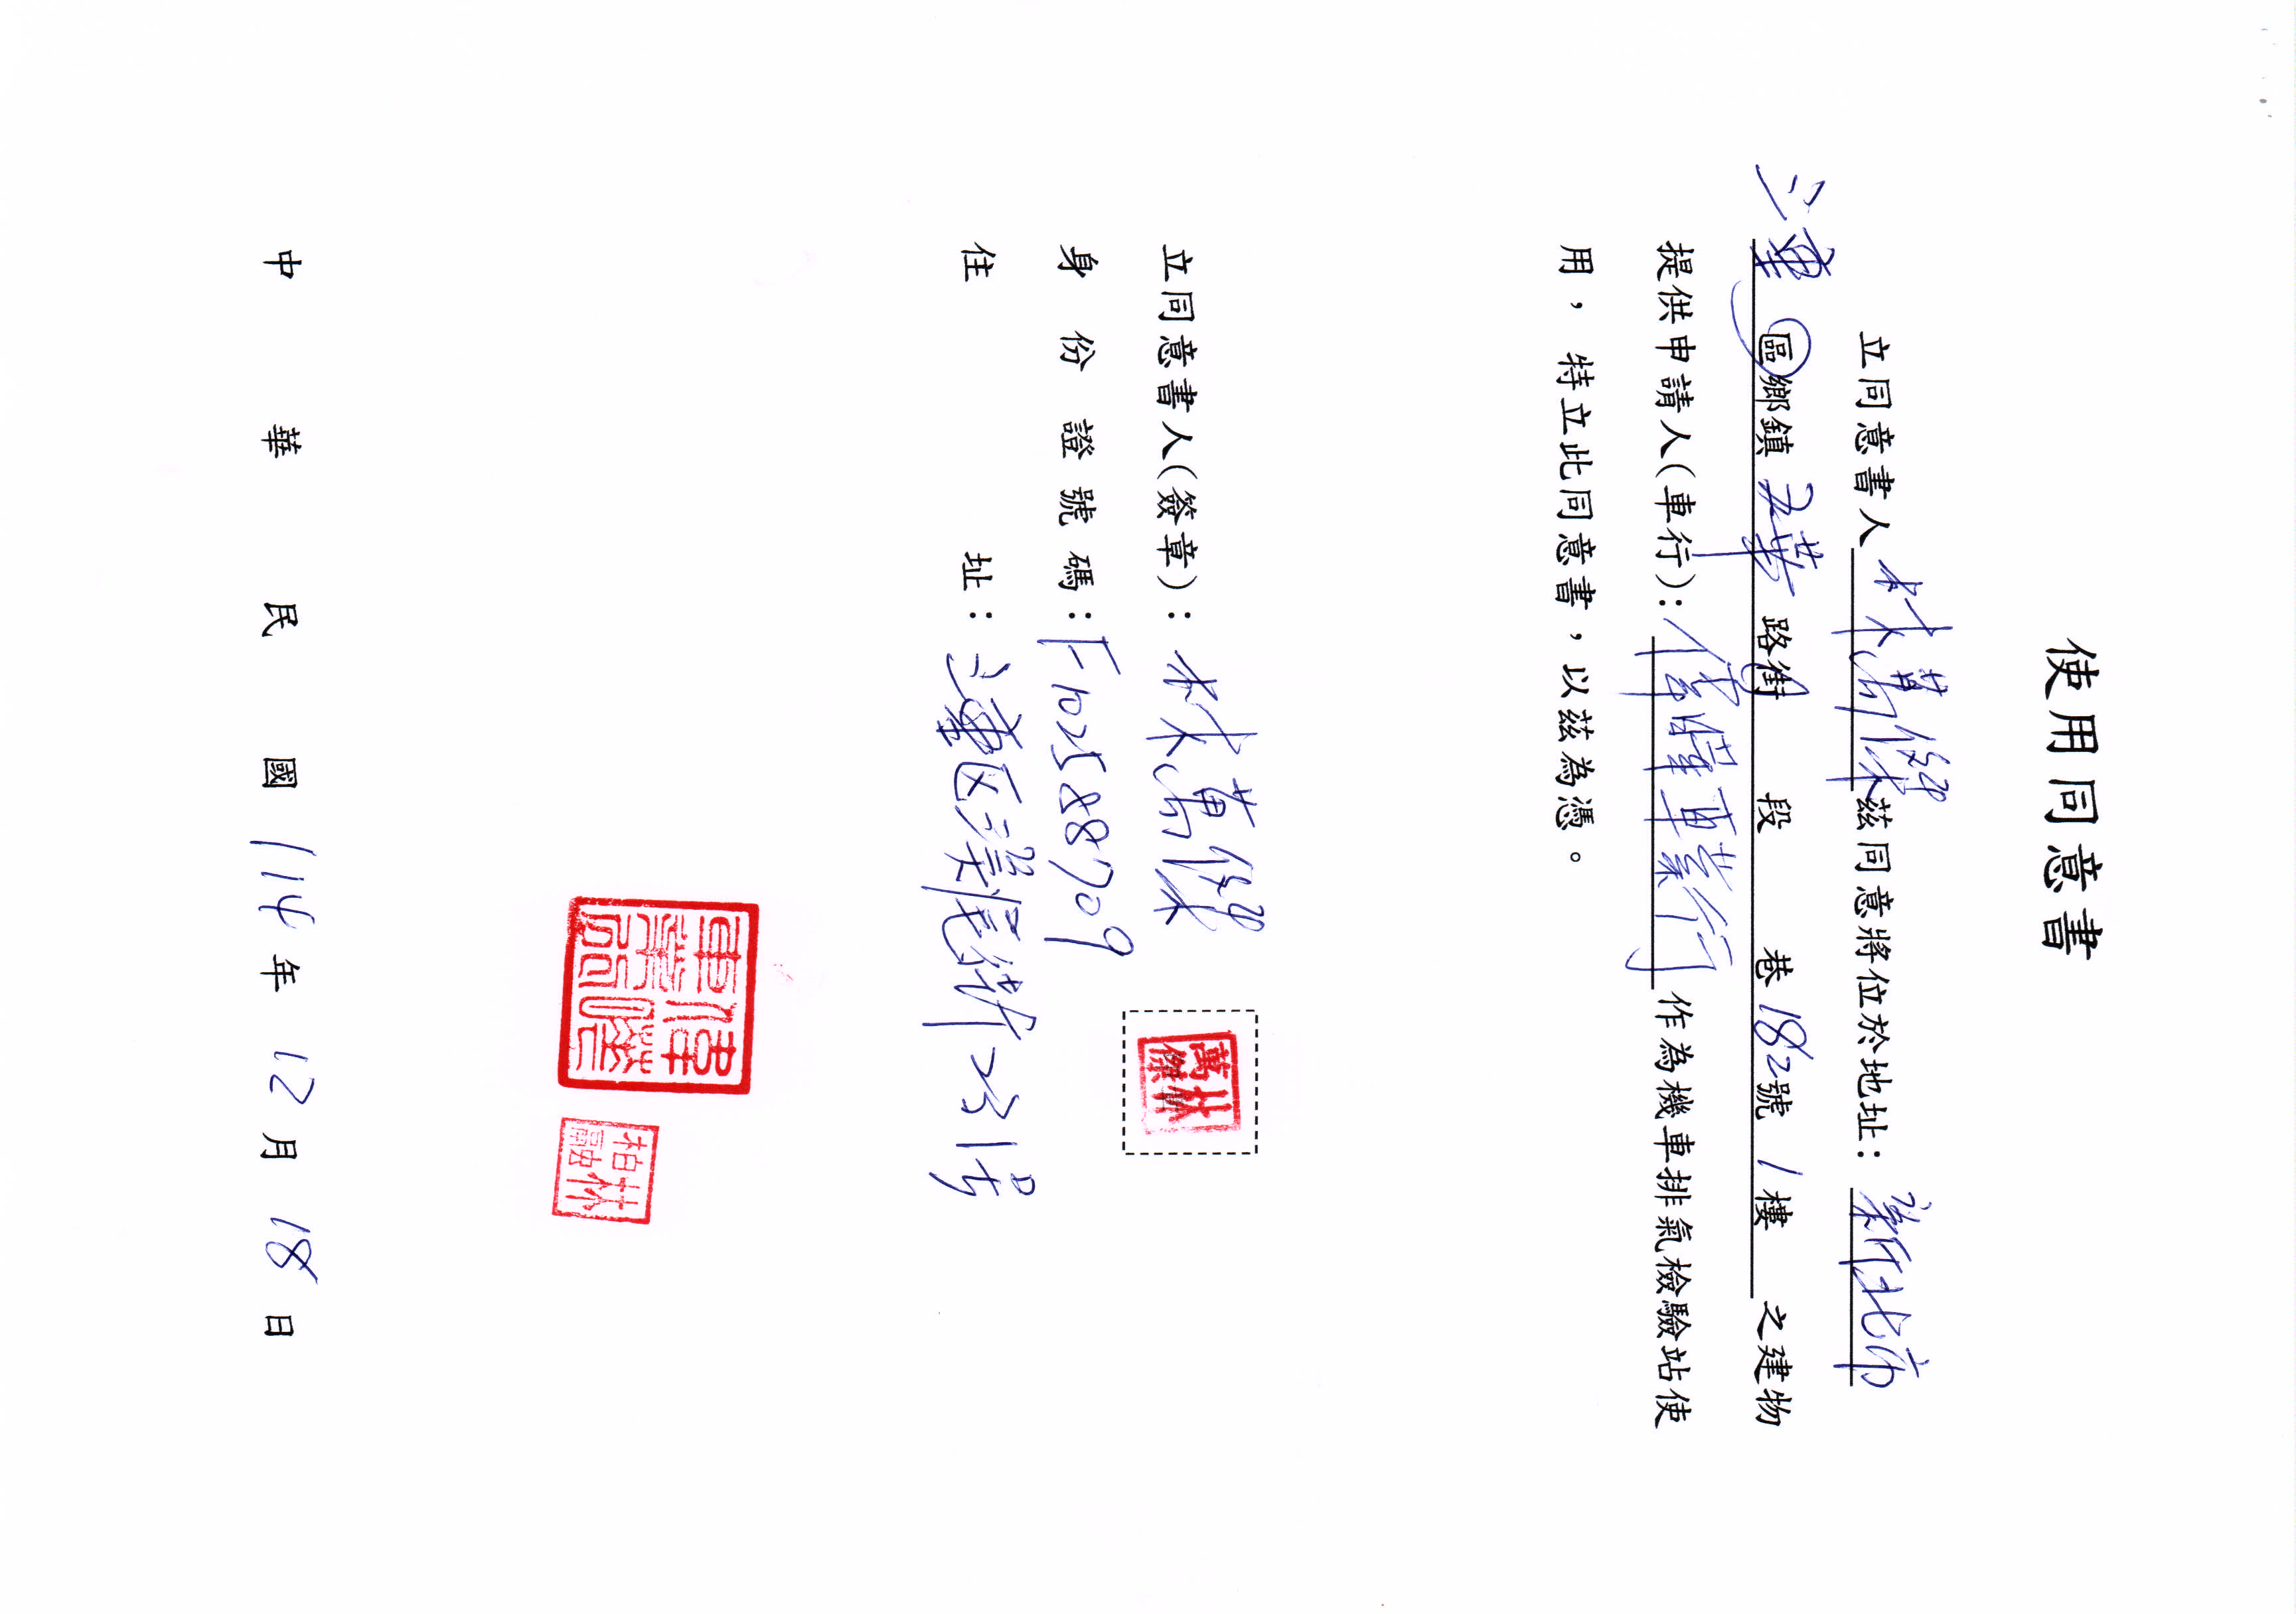 使用同意書
立同意書人 林萬傑 茲同意將位於地址：新北市
三重 區鄉鎮 五華 路街 段 巷 182號 1樓 之建物
提供申請人(車行)：偉曜車業行 作為機車排氣檢驗站使
用，特立此同意書，以茲為憑。
立同意書人(簽章)：林萬傑
林萬傑
身份證號碼：F102588709
住址：三重区溪尾街231号
林柏融
中華民國 114 年 12 月 18 日